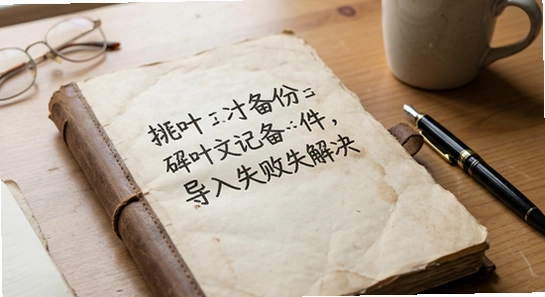 挑叶 备份
碎叶文记备 件，
导入失败失解决